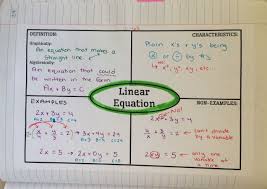 DEFINITION:
Graphically:
An equation that makes a
straight line.
Algebraically:
An equation that could
be written in the form
Ax + By = C
CHARACTERISTICS:
Plain x's + y's being
+ or - by #s
NO:
x², y³, xy, etc.
Linear
Equation
EXAMPLES:
2x + 3y = 4
A=2 B=3 C=4
→ 3x + 4y = 24
2x = 5 → 2x + 0y = 5
A=2 B=0 C=5
NON-EXAMPLES:
No!
can't divide
by a variable
2xy = 5
only one
variable at
a time